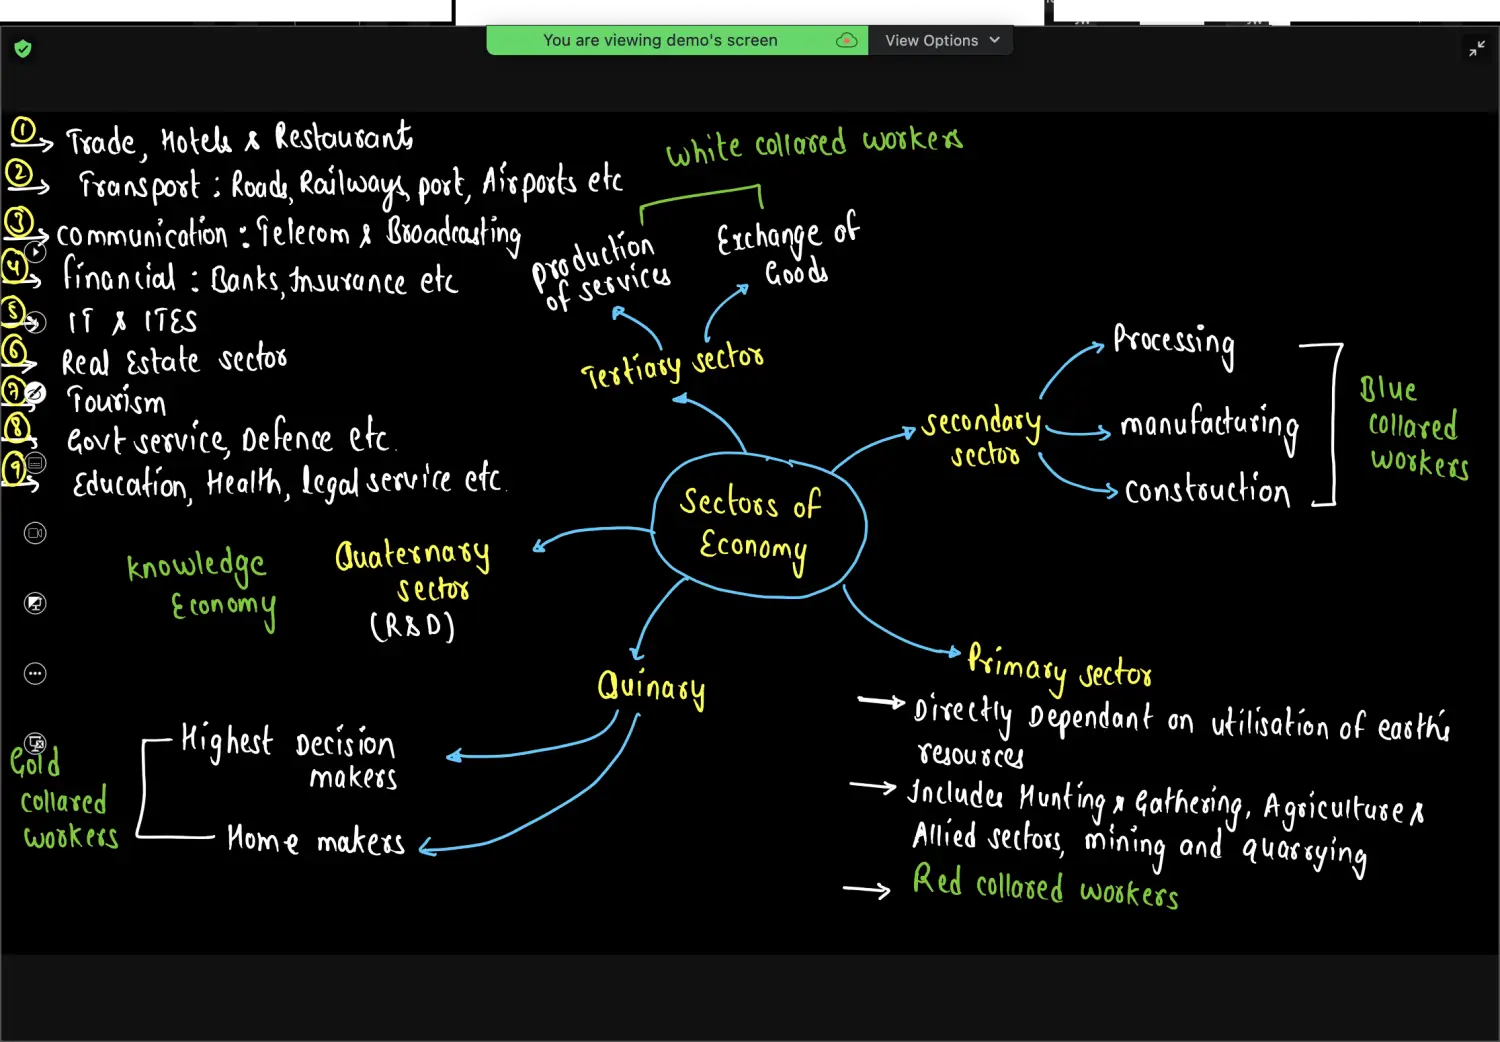 You are viewing demo's screen
View Options
① → Trade, Hotels & Restaurants
② → Transport : Roads, Railways, port, Airports etc
③ → communication : Telecom & Broadcasting
④ → financial : Banks, Insurance etc
⑤ → IT & ITES
⑥ → Real Estate sector
⑦ → Tourism
⑧ → Govt service, Defence etc.
⑨ → Education, Health, legal service etc.
white collared workers
Production
of services
Exchange of
Goods
Tertiary sector
secondary
sector
Processing
manufacturing
construction
Blue
collared
workers
Sectors of
Economy
Quaternary
sector
(R&D)
knowledge
Economy
Quinary
Highest Decision
makers
Home makers
Gold
collared
workers
Primary sector
→ Directly Dependant on utilisation of earth's
resources
→ Includes Hunting & Gathering, Agriculture &
Allied sectors, mining and quarrying
→ Red collared workers